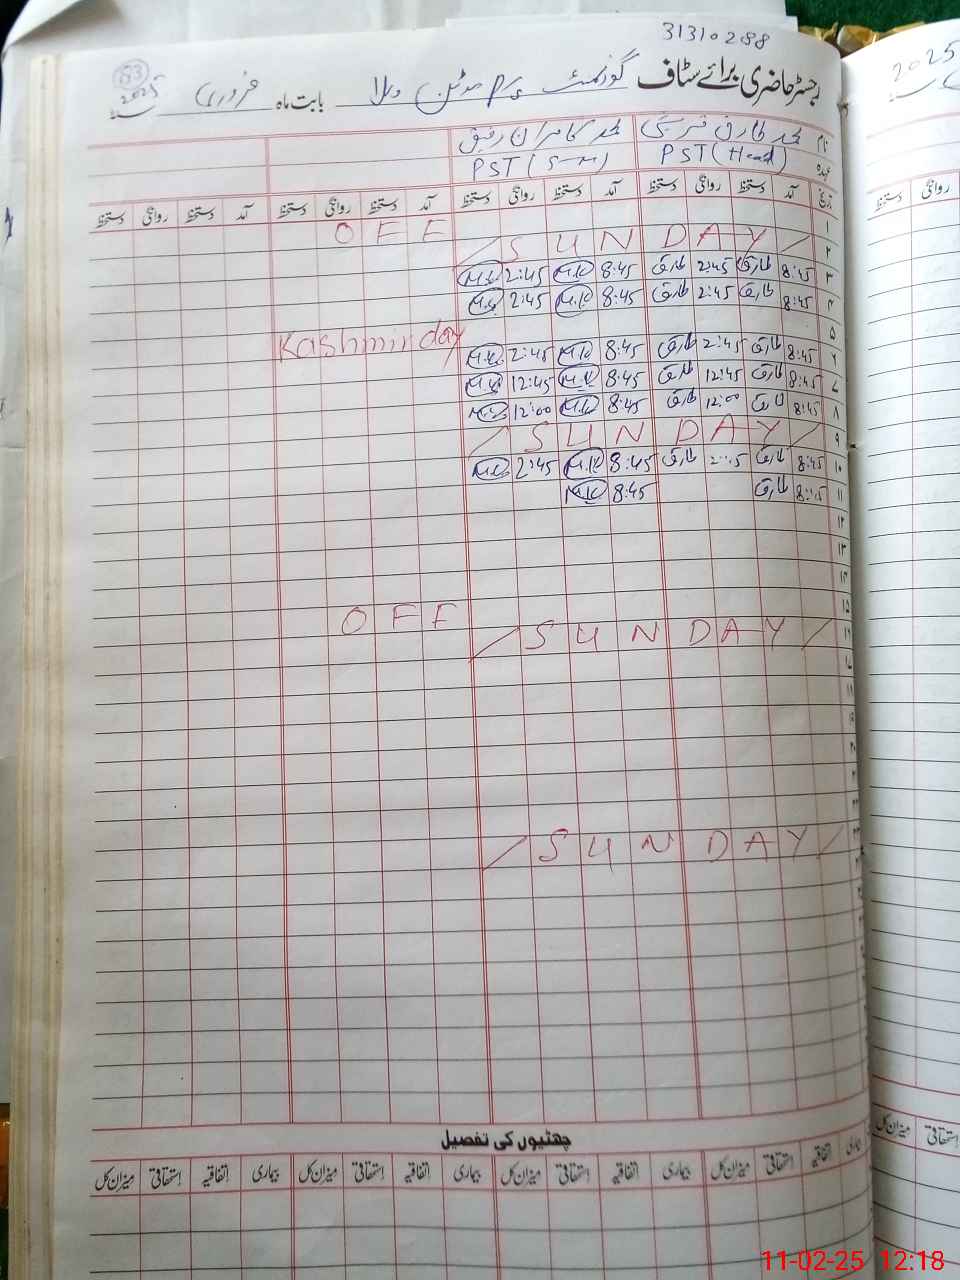 31310288
رجسٹر حاضری برائے سٹاف گورنمنٹ P/s موٹن والا بابت ماہ فروری 2025
183
نام محمد طارق قریشی محمد کامران رفیق
عہدہ PST (Head) PST
تاریخ آمد دستخط روانگی دستخط آمد دستخط روانگی دستخط آمد دستخط روانگی دستخط آمد دستخط روانگی دستخط
۱ OFF
۲ / SUNDAY /
۳ 8:45 طارق 2:45 طارق 8:45 M.K 2:45 M.K
۴ 8:45 طارق 2:45 طارق 8:45 M.K 2:45 M.K
۵ Kashmir day
۶ 8:45 طارق 2:45 طارق 8:45 M.K 2:45 M.K
۷ 8:45 طارق 12:45 طارق 8:45 M.K 12:45 M.K
۸ 8:45 طارق 12:00 طارق 8:45 M.K 12:00 M.K
۹ / SUNDAY /
۱۰ 8:45 طارق 2:45 طارق 8:45 M.K 2:45 M.K
۱۱ 8:45 طارق 8:45 M.K
۱۲
۱۳
۱۴
۱۵ OFF
۱۶ / SUNDAY /
۱۷
۱۸
۱۹
۲۰
/ SUNDAY /
چھٹیوں کی تفصیل
بیماری اتفاقیہ استحقاقی میزان کل بیماری اتفاقیہ استحقاقی میزان کل بیماری اتفاقیہ استحقاقی میزان کل بیماری اتفاقیہ استحقاقی میزان کل
2025
روانگی دستخط
استحقاقی میزان کل
11-02-25 12:18